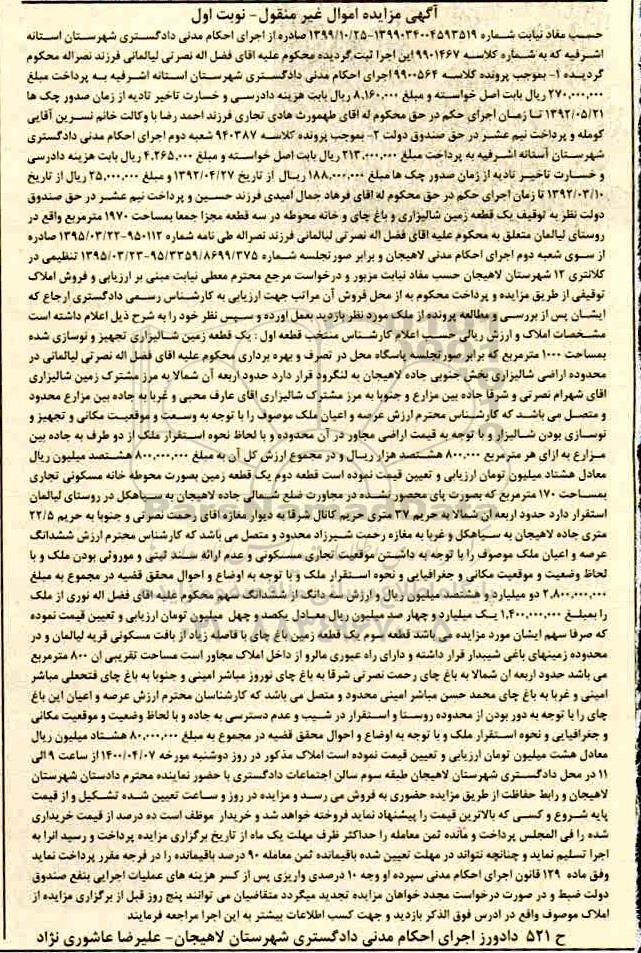 آگهی مزایده اموال غیر منقول- نوبت اول
حسب مفاد نیابت شماره ۱۳۹۹۰۳۴۰۰۴۵۹۳۵۱۹-۱۳۹۹/۱۰/۲۵ صادره از اجرای احکام مدنی دادگستری شهرستان استانه
اشرفیه که به شماره کلاسه ۹۹۰۱۴۶۷ این اجرا ثبت گردیده محکوم علیه اقای فضل اله نصرتی لیالمانی فرزند نصراله محکوم
گردیده ۱- بموجب پرونده کلاسه ۹۹۰۰۵۶۴ اجرای احکام مدنی دادگستری شهرستان استانه اشرفیه به پرداخت مبلغ
۲۷۰,۰۰۰,۰۰۰ ریال بابت اصل خواسته و مبلغ ۸,۱۶۰,۰۰۰ ریال بابت هزینه دادرسی و خسارت تاخیر تادیه از زمان صدور چک ها
۱۳۹۲/۰۵/۲۱ تا زمان اجرای حکم در حق محکوم له اقای طهمورث هادی تجاری فرزند احمد رضا با وکالت خانم نسرین آقایی
کومله و پرداخت نیم عشر در حق صندوق دولت ۲- بموجب پرونده کلاسه ۹۴۰۳۸۷ شعبه دوم اجرای احکام مدنی دادگستری
شهرستان آستانه اشرفیه به پرداخت مبلغ ۲۱۳,۰۰۰,۰۰۰ ریال بابت اصل خواسته و مبلغ ۴,۲۶۵,۰۰۰ ریال بابت هزینه دادرسی
و خسارت تاخیر تادیه از زمان صدور چک ها مبلغ ۱۸۸,۰۰۰,۰۰۰ ریال از تاریخ ۱۳۹۲/۰۴/۲۷ و مبلغ ۲۵,۰۰۰,۰۰۰ ریال از تاریخ
۱۳۹۲/۰۳/۱۰ تا زمان اجرای حکم در حق محکوم له اقای فرهاد جمال امیدی فرزند حسین و پرداخت نیم عشر در حق صندوق
دولت نظر به توقیف یک قطعه زمین شالیزاری و باغ چای و خانه محوطه در سه قطعه مجزا جمعا بمساحت ۱۹۷۰ مترمربع واقع در
روستای لیالمان متعلق به محکوم علیه اقای فضل اله نصرتی لیالمانی فرزند نصراله طی نامه شماره ۹۵۰۱۱۲-۱۳۹۵/۰۳/۲۲ صادره
از سوی شعبه دوم اجرای احکام مدنی لاهیجان و برابر صورتجلسه شماره ۹۵/۳۳۵۹/۸۶۹۹/۳۷۵-۱۳۹۵/۰۳/۲۳ تنظیمی در
کلانتری ۱۲ شهرستان لاهیجان حسب مفاد نیابت مزبور و درخواست مرجع محترم معطی نیابت مبنی بر ارزیابی و فروش املاک
توقیفی از طریق مزایده و پرداخت محکوم به از محل فروش آن مراتب جهت ارزیابی به کارشناس رسمی دادگستری ارجاع که
ایشان پس از بررسی و مطالعه پرونده از ملک مورد نظر بازدید بعمل اورده و سپس نظر خود را به شرح ذیل اعلام داشته است
مشخصات املاک و ارزش ریالی حسب اعلام کارشناس منتخب قطعه اول : یک قطعه زمین شالیزاری تجهیز و نوسازی شده
بمساحت ۱۰۰۰ مترمربع که برابر صورتجلسه پاسگاه محل در تصرف و بهره برداری محکوم علیه اقای فضل اله نصرتی لیالمانی در
محدوده اراضی شالیزاری بخش جنوبی جاده لاهیجان به لنگرود قرار دارد حدود اربعه آن شمالا به مرز مشترک زمین شالیزاری
اقای شهرام نصرتی و شرقا جاده بین مزارع و جنوبا به مرز مشترک شالیزاری اقای عارف محبی و غربا به جاده بین مزارع محدود
و متصل می باشد که کارشناس محترم ارزش عرصه و اعیان ملک موصوف را با توجه به وسعت و موقعیت مکانی و تجهیز و
نوسازی بودن شالیزار و با توجه به قیمت اراضی مجاور در آن محدوده و با لحاظ نحوه استقرار ملک از دو طرف به جاده بین
مزارع به ازای هر مترمربع ۸۰۰,۰۰۰ هشتصد هزار ریال و در مجموع ارزش کل آن به مبلغ ۸۰۰,۰۰۰,۰۰۰ هشتصد میلیون ریال
معادل هشتاد میلیون تومان ارزیابی و تعیین قیمت نموده است قطعه دوم یک قطعه زمین بصورت محوطه خانه مسکونی تجاری
بمساحت ۱۷۰ مترمربع که بصورت پای محصور نشده در مجاورت ضلع شمالی جاده لاهیجان به سیاهکل در روستای لیالمان
استقرار دارد حدود اربعه ان شمالا به حریم ۳۷ متری حریم کانال شرقا به دیوار مغازه اقای رحمت نصرتی و جنوبا به حریم ۲۲/۵
متری جاده لاهیجان به سیاهکل و غربا به مغازه رحمت شیرزاد محدود و متصل می باشد که کارشناس محترم ارزش ششدانگ
عرصه و اعیان ملک موصوف را با توجه به داشتن موقعیت تجاری مسکونی و عدم ارائه سند ثبتی و موروثی بودن ملک و با
لحاظ وضعیت و موقعیت مکانی و جغرافیایی و نحوه استقرار ملک و با توجه به اوضاع و احوال محقق قضیه در مجموع به مبلغ
۲,۸۰۰,۰۰۰,۰۰۰ دو میلیارد و هشتصد میلیون ریال و ارزش سه دانگ از ششدانگ سهم محکوم علیه اقای فضل اله نوری از ملک
را بمبلغ ۱,۴۰۰,۰۰۰,۰۰۰ یک میلیارد و چهار صد میلیون ریال معادل یکصد و چهل میلیون تومان ارزیابی و تعیین قیمت نموده
که صرفا سهم ایشان مورد مزایده می باشد قطعه سوم یک قطعه زمین باغ چای با فاصله زیاد از بافت مسکونی قریه لیالمان و در
محدوده زمینهای باغی شیبدار قرار داشته و دارای راه عبوری مالرو از داخل املاک مجاور است مساحت تقریبی ان ۸۰۰ مترمربع
می باشد حدود اربعه ان شمالا به باغ چای رحمت نصرتی شرقا به باغ چای نوروز مباشر امینی و جنوبا به باغ چای فتحعلی مباشر
امینی و غربا به باغ چای محمد حسن مباشر امینی محدود و متصل می باشد که کارشناسان محترم ارزش عرصه و اعیان این باغ
چای را با توجه به دور بودن از محدوده روستا و استقرار در شیب و عدم دسترسی به جاده و با لحاظ وضعیت و موقعیت مکانی
و جغرافیایی و نحوه استقرار ملک و با توجه به اوضاع و احوال محقق قضیه در مجموع به مبلغ ۸۰,۰۰۰,۰۰۰ هشتاد میلیون ریال
معادل هشت میلیون تومان ارزیابی و تعیین قیمت نموده است املاک مذکور در روز دوشنبه مورخه ۱۴۰۰/۰۴/۰۷ از ساعت ۹ الی
۱۱ در محل دادگستری شهرستان لاهیجان طبقه سوم سالن اجتماعات دادگستری با حضور نماینده محترم دادستان شهرستان
لاهیجان و رابط حفاظت از طریق مزایده حضوری به فروش می رسد و مزایده در روز و ساعت تعیین شده تشکیل و از قیمت
پایه شروع و کسی که بالاترین قیمت را پیشنهاد نماید فروخته خواهد شد و خریدار موظف است ده درصد از قیمت خریداری
شده را فی المجلس پرداخت و مانده ثمن معامله را حداکثر ظرف مهلت یک ماه از تاریخ برگزاری مزایده پرداخت و رسید انرا به
اجرا تسلیم نماید و چنانچه نتواند در مهلت تعیین شده باقیمانده ثمن معامله ۹۰ درصد باقیمانده را در فرجه مقرر پرداخت نماید
وفق ماده ۱۲۹ قانون اجرای احکام مدنی سپرده او وجه ۱۰ درصدی واریزی پس از کسر هزینه های عملیات اجرایی بنفع صندوق
دولت ضبط و در صورت درخواست مجدد خواهان مزایده تجدید میگردد متقاضیان می توانند پنج روز قبل از برگزاری مزایده از
املاک موصوف واقع در ادرس فوق الذکر بازدید و جهت کسب اطلاعات بیشتر به این اجرا مراجعه فرمایند
ح ۵۲۱ دادورز اجرای احکام مدنی دادگستری شهرستان لاهیجان- علیرضا عاشوری نژاد